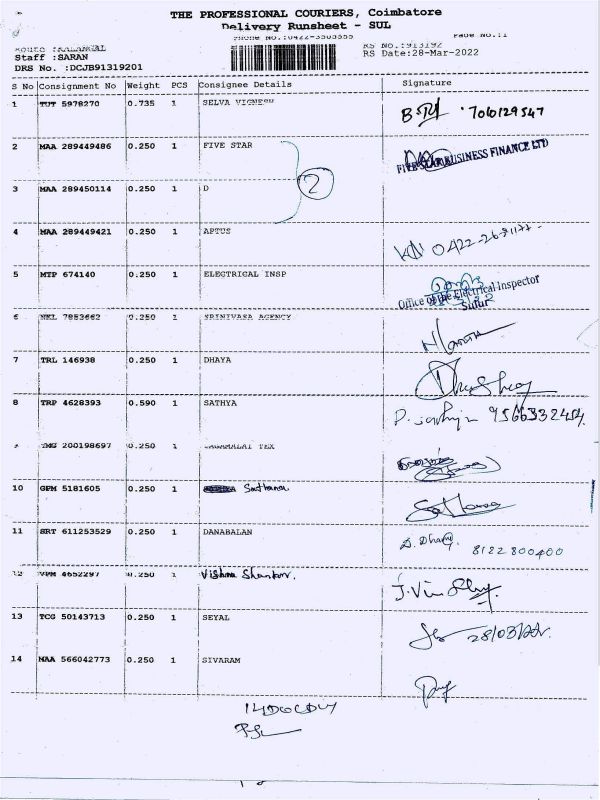 THE PROFESSIONAL COURIERS, Coimbatore
Delivery Runsheet - SUL
Phone No.:0422-3505555 Page No.:1
RS No.:913192
Staff :SARAN RS Date:28-Mar-2022
DRS No. :DCJB91319201
S No Consignment No Weight PCS Consignee Details Signature
1 TUT 5978270 0.735 1 SELVA VIGNESH 7060129547
2 MAA 289449486 0.250 1 FIVE STAR FIVE STAR BUSINESS FINANCE LTD
2
3 MAA 289450114 0.250 1 D
4 MAA 289449421 0.250 1 APTUS
5 MTP 674140 0.250 1 ELECTRICAL INSP Office of the Electrical Inspector
Sulur
6 NKL 7853662 0.250 1 SRINIVASA AGENCY
7 TRL 146938 0.250 1 DHAYA
8 TRP 4628393 0.590 1 SATHYA 9566332454
200198697 0.250 1 TEX
10 GPM 5181605 0.250 1 Sathana
11 SRT 611253529 0.250 1 DANABALAN D. Dhan 8122800400
12 VPM 4652297 0.250 1 Vishnu Shankar.
13 TCG 50143713 0.250 1 SEYAL 28/03/22
14 NAA 566042773 0.250 1 SIVARAM